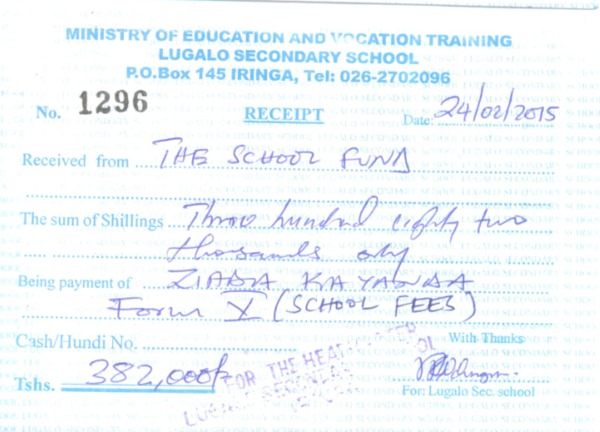 MINISTRY OF EDUCATION AND VOCATION TRAINING
LUGALO SECONDARY SCHOOL
P.O.Box 145 IRINGA, Tel: 026-2702096
No. 1296 RECEIPT Date: 24/02/2015
Received from THE SCHOOL FUND
The sum of Shillings Three hundred eighty two
thousands only
Being payment of ZIADA KAYANDA
Form V (SCHOOL FEES)
Cash/Hundi No. With Thanks
Tshs. 382,000/=
FOR THE HEADMASTER
LUGALO SECONDARY
For: Lugalo Sec. school